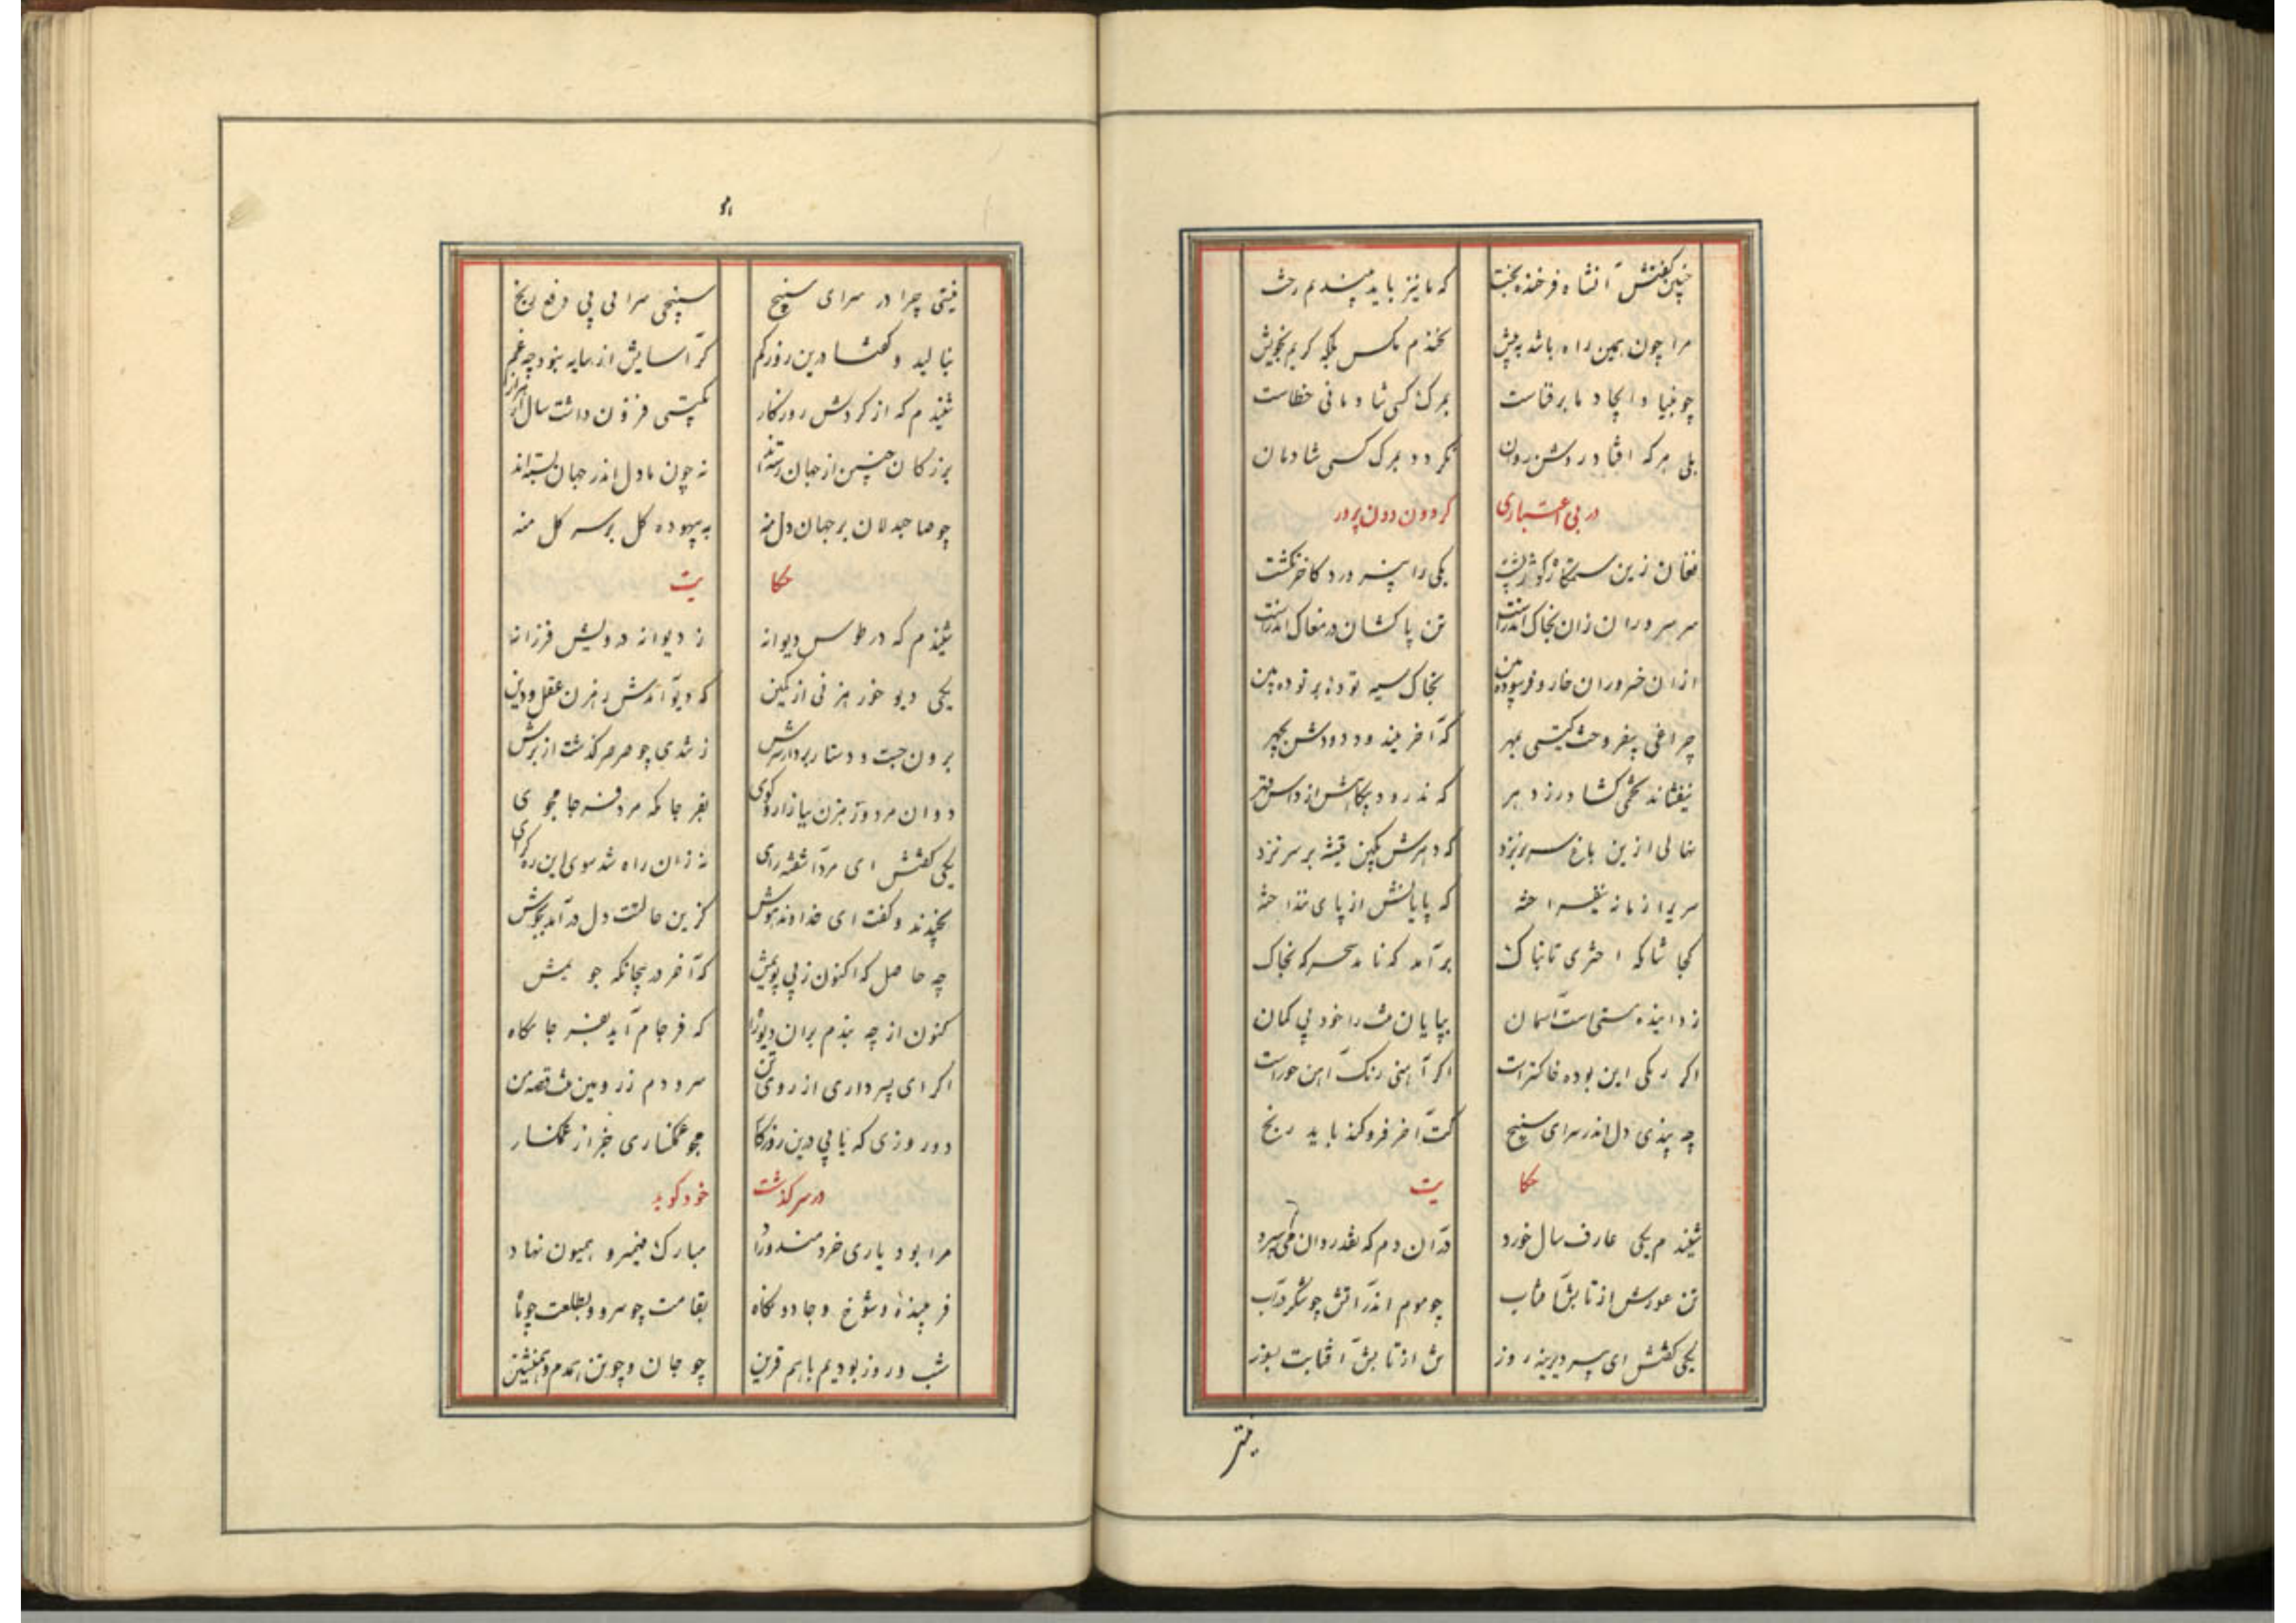 چنین گفتش آنشاه فرخنده بخت که ما نیز باید ببندیم رخت
مرا چون همین راه باشد به پیش نخندم بکس بلکه گریم بخویش
چو بنیاد ایجاد ما بر فناست بمرگ کسی شادمانی خطاست
بلی هر که افتاد روشن روان نگردد بمرگ کسی شادمان
در بی اعتباری گردون دون پرور
فغان زین کوژپشت یکی را نپرورد کاخر نکشت
سر سروران زان بخاک اندر است تن پاکشان در مغاک اندر است
ازان خسروان خار و فرسوده بین بخاک سیه توده بر توده بین
چراغی نیفروخت گیتی بمهر که آخر نیندود دودش بچهر
نیفشاند تخمی کشاورز دهر که ندرود بیگاهش از داس قهر
نهالی ازین باغ سر بر نزد که دهرش بکین تیشه بر سر نزد
سریر از مانه نیفراخته که پایانش از پای ننداخته
بجا شامگه اختری تابناک برآمد که نامد سحرگه بخاک
زداینده هستی است آسمان بپایان مت را خود بی گمان
اگر ریگی این بوده خاکستر است اگر آهنی زنگ آهن خوراست
چه بندی دل اندر سرای سپنج کت آخر فرو کند باید ز گنج
حکایت
شنیدم یکی عارف سال خورد در آن دم که نقد روان می سپرد
تن عورش از تابش آفتاب چو موم اندر آتش چو شکر در آب
یکی گفتش ای پیر دیرینه روز تن از تابش آفتابت بسوز
نیتی
۱۰
نیتی چرا در سرای سپنج سپنجی سرایی پی دفع رنج
بنالید و گفتا درین روز کم گر آسایش از سایه نبود چه غم
شنیدم که از گردش روزگار بگیتی فزون داشت سال از هزار
بزرگان چنین از جهان رسته‌اند نه چون ما دل اندر جهان بسته‌اند
چو صاحبدلان بر جهان دل منه به بیهوده گل بر سر گل منه
حکایت
شنیدم که در طوس دیوانه ز دیوانه درویش فرزانه
یکی دیو خو رهزنی از کمین که دیو آمدش رهزن عقل و دین
برون جست و دستار بردار سرش ز تندی چو صرصر گذشت از برش
دوان مرد و رهزن ببازار و کوی بفرجامگه مرد فرجامجوی
یکی گفتش ای مرد آشفته رای نه زان راه شد سوی این ره گرای
بخندید و گفت ای خداوند هوش کزین حالتت دل درآمد بجوش
چه حاصل که اکنون ز پی پویمش که آخر در ینجانگه جویمش
کنون از چه بندم بران دیو راه که فرجام آید بفرجامگاه
اگر ای پسر داری از روی تن سرودم ز رویین مت قصه من
دو روزی که پایی درین روزگار مجو غمگساری جز از غمگسار
در سرگذشت خود گوید
مرا بود یاری خردمند و راد مبارک ضمیر و همیون نهاد
فریبنده و شوخ و جادو نگاه بقامت چو سرو و بطلعت چو ماه
شب و روز بودیم با هم قرین چو جان و چو تن همدم و همنشین